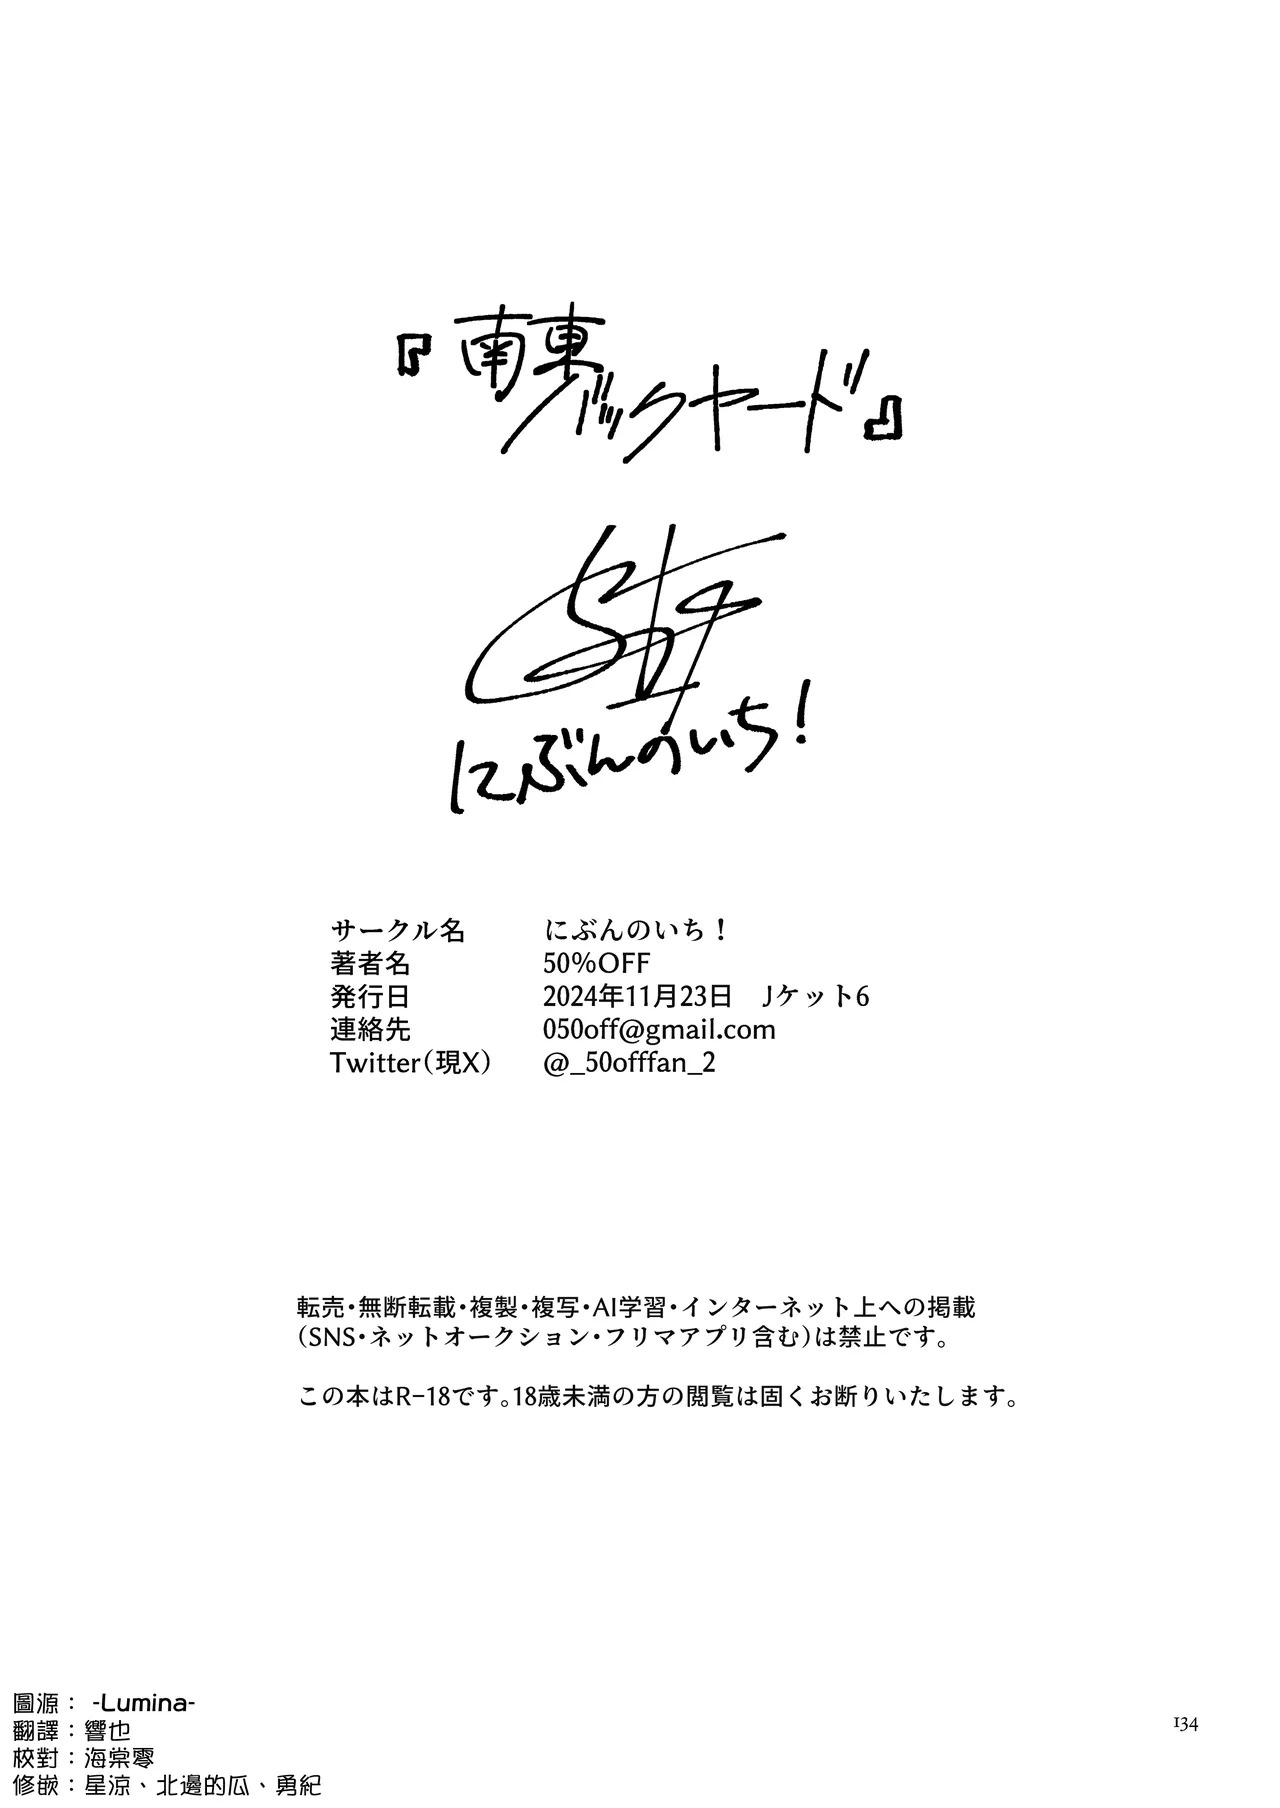 『南東
バックヤード』
にぶんのいち！
サークル名　にぶんのいち！
著者名　50%OFF
発行日　2024年11月23日　Jケット6
連絡先　050off@gmail.com
Twitter(現X)　@_50offfan_2
転売・無断転載・複製・複写・AI学習・インターネット上への掲載
(SNS・ネットオークション・フリマアプリ含む)は禁止です。
この本はR-18です。18歳未満の方の閲覧は固くお断りいたします。
圖源： -Lumina-
翻譯：響也
校對：海棠零
修嵌：星涼、北邊的瓜、勇紀
134